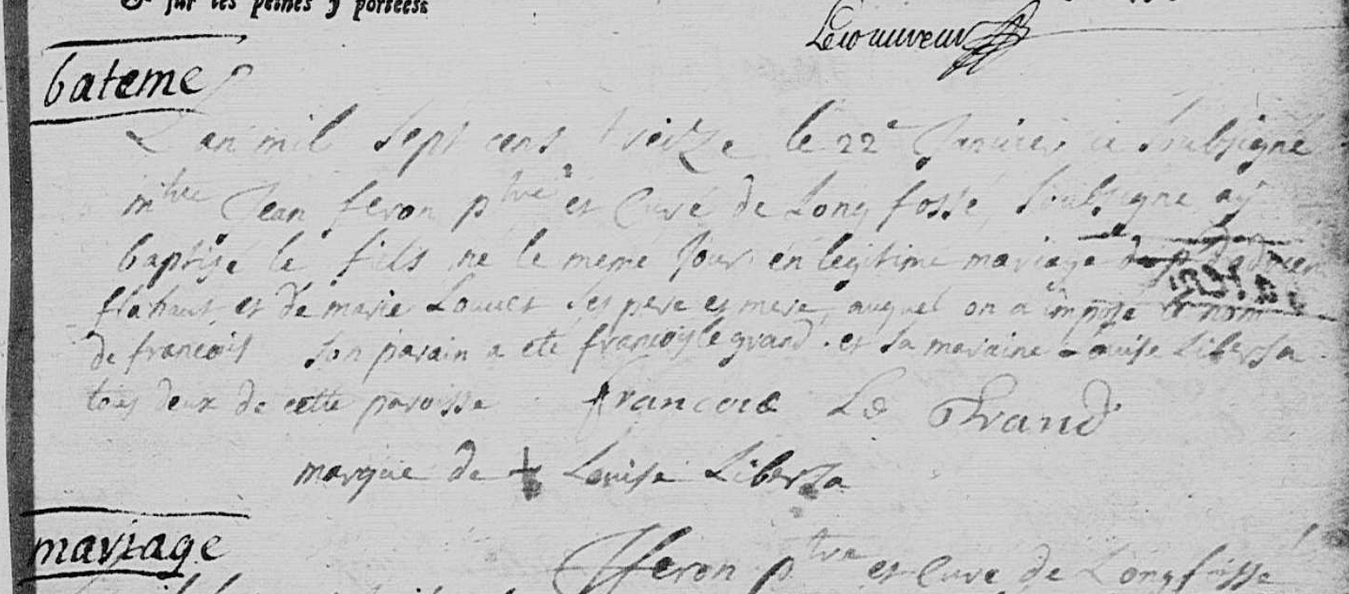 & sur les peines y portées.
Lecouvreur
bateme
L an mil sept cens treize le 22e Janvier ie soubsigné
mtre Jean feron ptre et Curé de Longfosse, soubsigné ay
baptisé le fils né le meme jour en legitime mariage d'adrien
flahaut et de marie Louuet ses pere et mere, auquel on a imposé le nom
de francois son parain a eté francois le grand. et sa maraine Louise Libersa.
tous deux de cette paroisse francois Le Grand
marque de + Louise Libersa
mariage
JFeron ptre et Curé de Longfosse